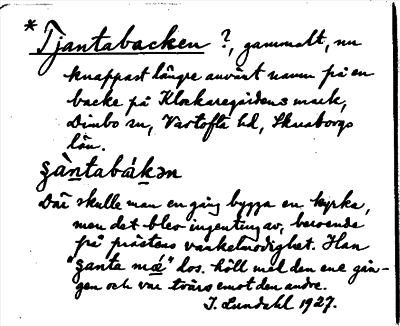 * Tjantabacken ?, gammalt, nu
knappast längre använt namn på en
backe på Klockaregårdens mark,
Dimbo sn, Vartofta hd, Skaraborgs
län.
ʂàntabákən
Där skulle man en gång bygga en kyrka,
men det blev ingenting av, beroende
på prästens vankelmodighet. Han
"ʂanta mǽ" dos. höll med den ene gån-
gen och var tvärs emot den andre.
I. Lundahl 1927.